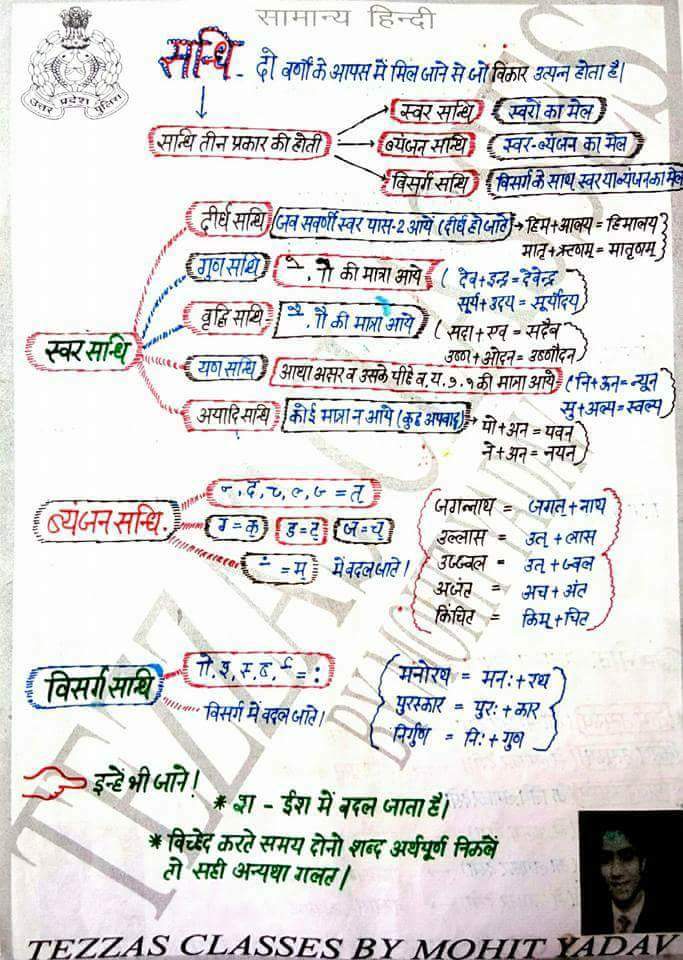 सामान्य हिन्दी
उत्तर प्रदेश पुलिस
सन्धि - दो वर्णों के आपस में मिल जाने से जो विकार उत्पन्न होता है।
सन्धि तीन प्रकार की होती
स्वर सन्धि स्वरों का मेल
व्यंजन सन्धि स्वर-व्यंजन का मेल
विसर्ग सन्धि विसर्ग के साथ स्वर या व्यंजन का मेल
स्वर सन्धि
दीर्घ सन्धि जब सवर्णी स्वर पास-2 आये (दीर्घ हो जाते) → हिम+आलय = हिमालय
मातृ+ऋणम् = मातृणम्
गुण सन्धि े, ो की मात्रा आये (देव+इन्द्र = देवेन्द्र
सूर्य+उदय = सूर्योदय
वृद्धि सन्धि ै, ौ की मात्रा आये (सदा+एव = सदैव
उष्ण+ओदन = उष्णौदन
यण सन्धि आधा अक्षर व उसके पीछे व, य, की मात्रा आये (नि+ऊन = न्यून
सु+अल्प = स्वल्प
अयादि सन्धि कोई मात्रा न आये (कुछ अपवाद) पो+अन = पवन
ने+अन = नयन
व्यंजन सन्धि.
= त्
ग = क् ड = ट् ज = च्
ं = म् में बदल जाते।
जगन्नाथ = जगत+नाथ
उल्लास = उत्+लास
उज्ज्वल = उत्+ज्वल
अजंत = अच+अंत
किंचित = किम्+चित
विसर्ग सन्धि
= :
विसर्ग में बदल जाते।
मनोरथ = मनः+रथ
पुरस्कार = पुरः+कार
निर्गुण = निः+गुण
इन्हें भी जाने!
* श - ईश में बदल जाता है।
* विच्छेद करते समय दोनो शब्द अर्थपूर्ण निकलें
तो सही अन्यथा गलत।
TEZZAS CLASSES
BY MOHIT YADAV
TEZZAS CLASSES BY MOHIT YADAV